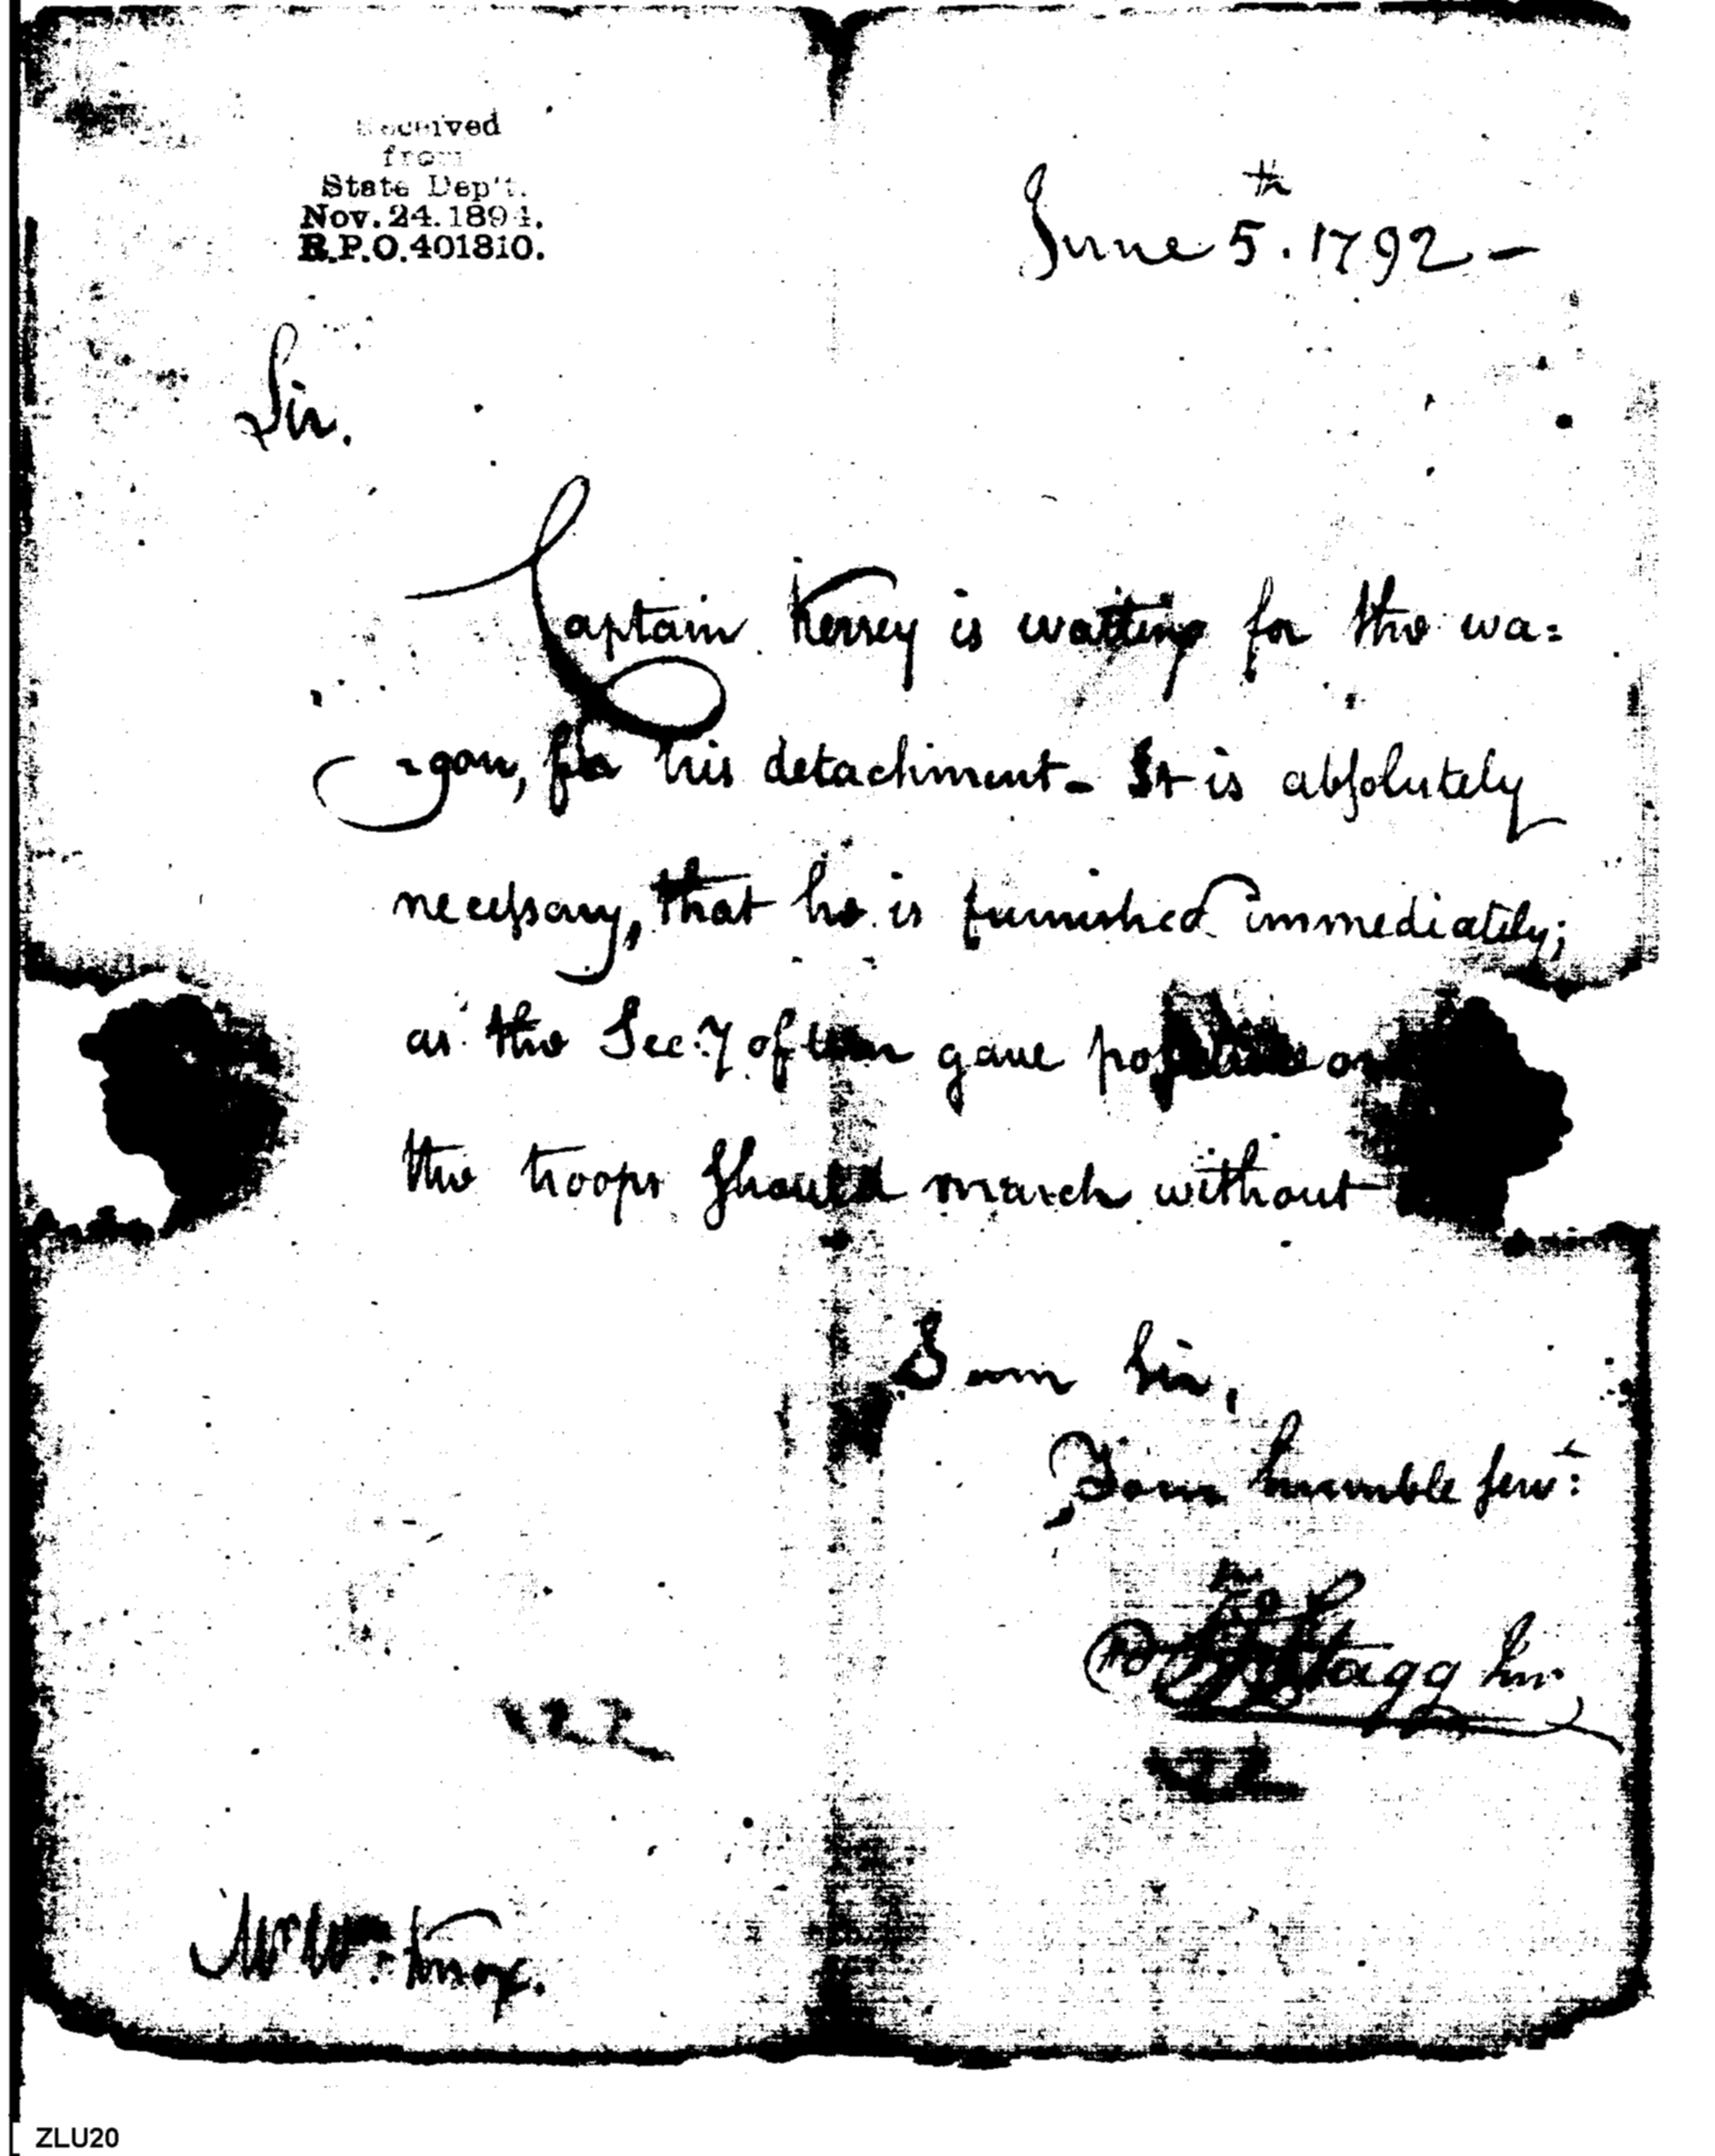 Received
from
State Dep't.
Nov. 24. 1894.
R.P.O. 401810.
June 5.th 1792 -
Sir.
Captain Kersey is waiting for the wa=
=gon, for his detachment - It is absolutely
necessary, that he is furnished immediately;
as the Sec:y of war gave
the troops should march without
I am Sir,
Your humble serv.t:
Stagg Jnr
122
122
Mr Wm. Knox.
ZLU20